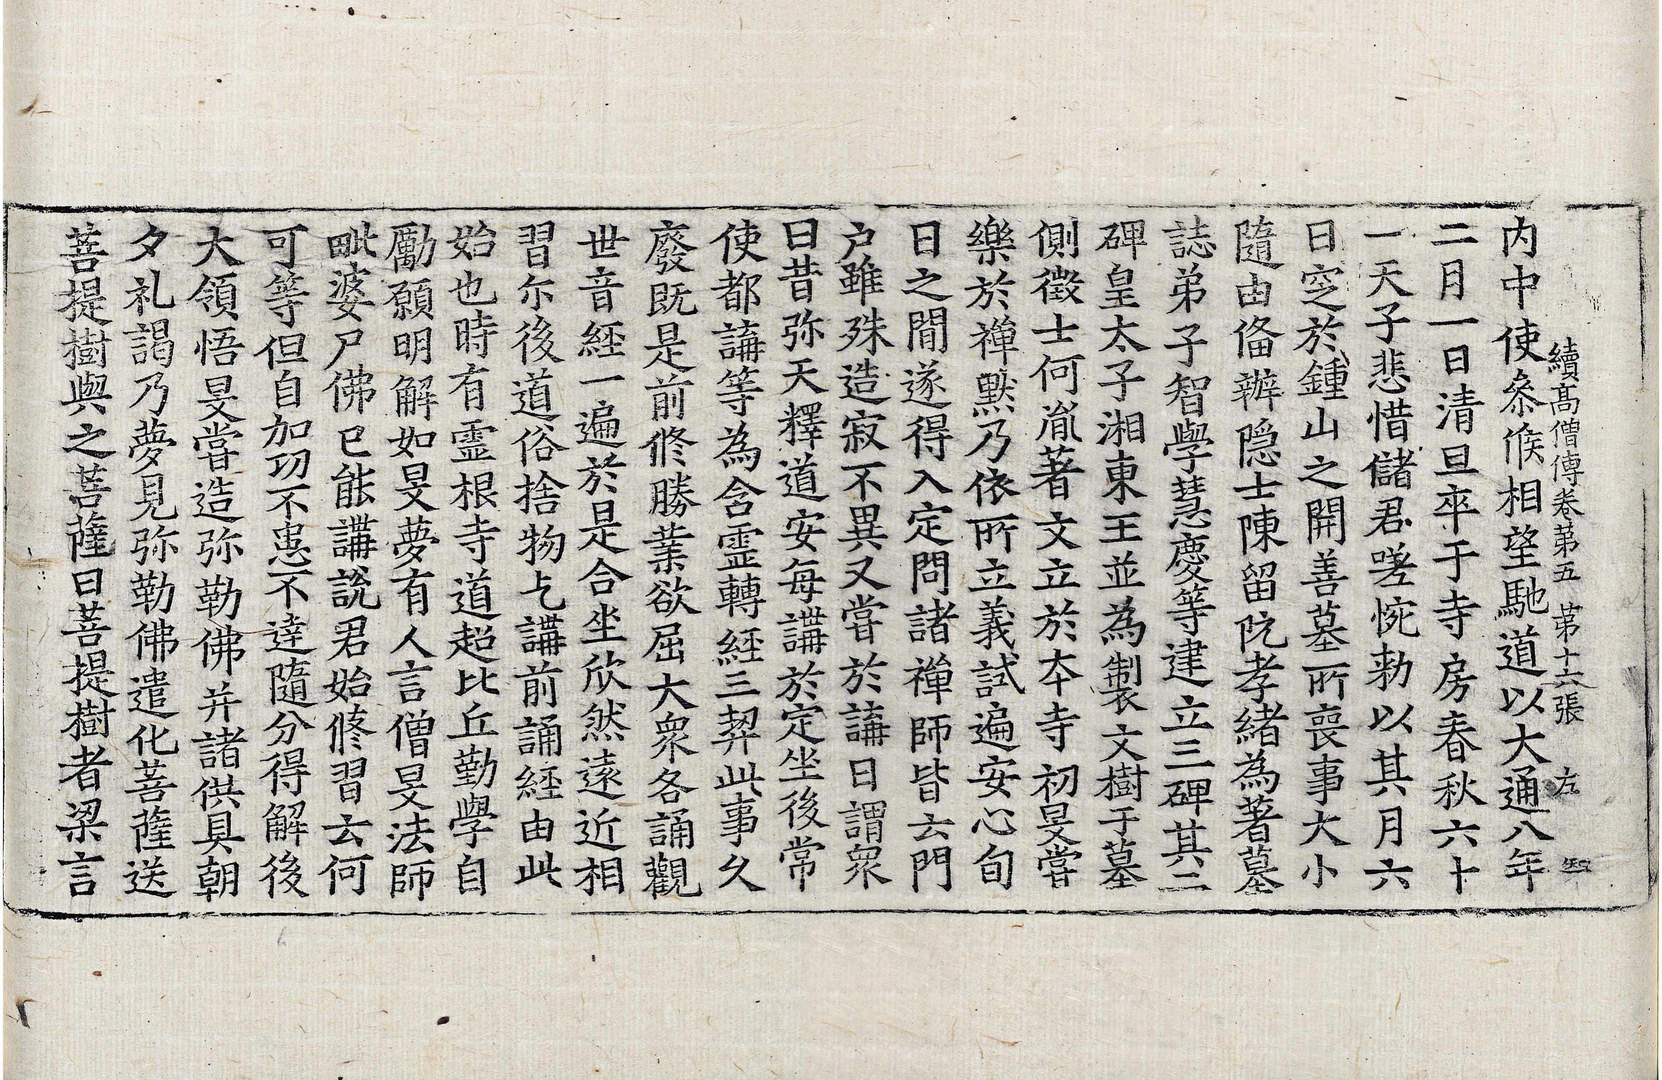 續髙僧傳卷第五 第十六張 左
内中使叅候相望馳道以大通八年
二月一日清旦卒于寺房春秋六十
一天子悲惜儲君嗟惋勑以其月六
日窆於鍾山之開善墓所喪事大小
隨由備辦隐士陳留阮孝緒為著墓
誌弟子智學慧慶等建立三碑其二
碑皇太子湘東王並為製文樹于墓
側徵士何胤著文立於夲寺初旻嘗
樂於禪默乃依所立義試遍安心旬
日之間遂得入定問諸禪師皆云門
户雖殊造寂不異又嘗於講日謂衆
曰昔弥天釋道安每講於定坐後常
使都講等為含靈轉經三契此事久
廢既是前修勝業欲屈大衆各誦觀
世音經一遍於是合坐欣然遠近相
習尓後道俗捨物乞講前誦經由此
始也時有靈根寺道超比丘勤學自
勵願明解如旻夢有人言僧旻法師
毗婆尸佛已能講說君始修習云何
可等但自加功不患不達隨分得解後
大領悟旻嘗造弥勒佛并諸供具朝
夕礼謁乃夢見弥勒佛遣化菩薩送
菩提樹與之菩薩曰菩提樹者梁言